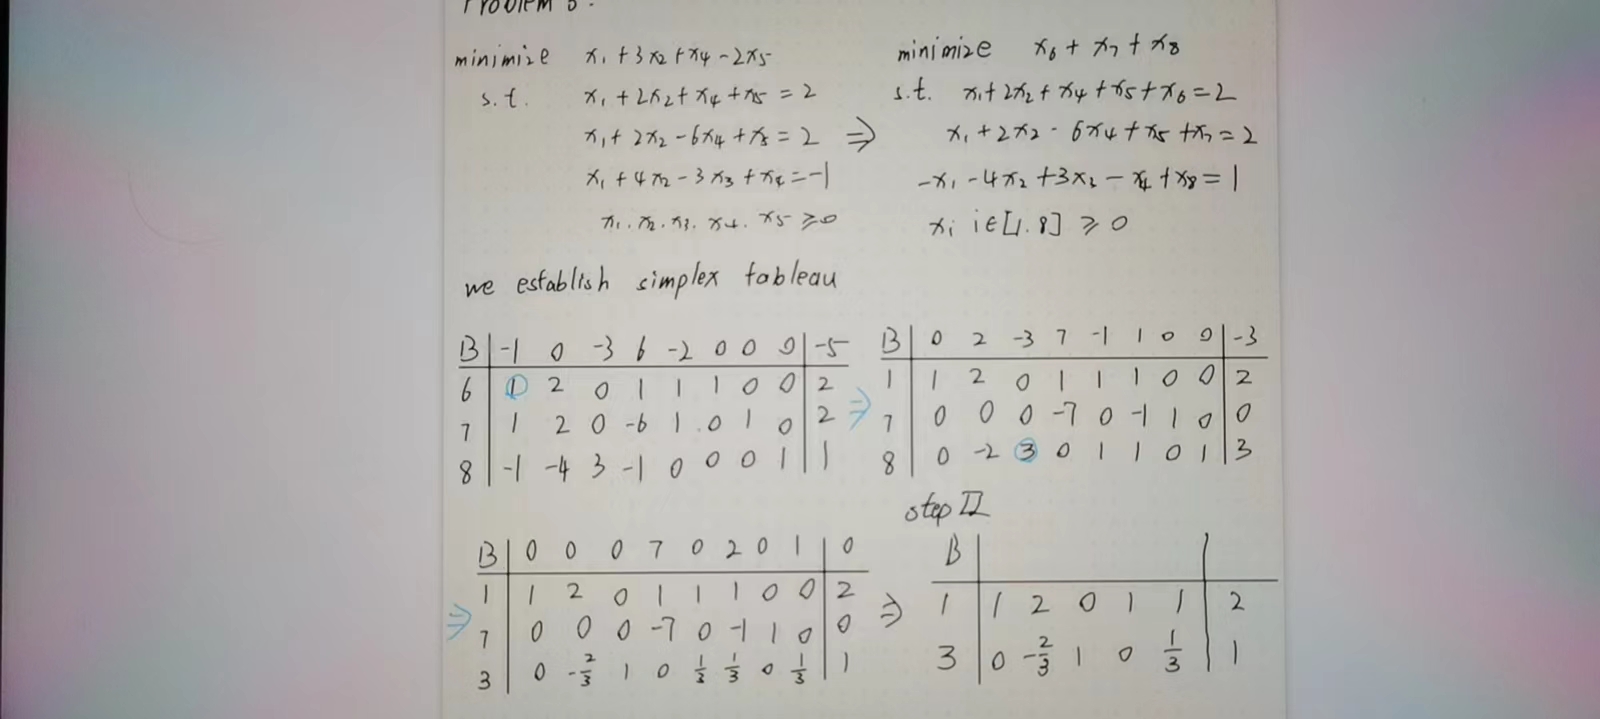 Problem
minimize x₁ + 3x₂ + x₄ - 2x₅
s.t. x₁ + 2x₂ + x₄ + x₅ = 2
x₁ + 2x₂ - 6x₄ + x₅ = 2 ⇒
x₁ + 4x₂ - 3x₃ + x₄ = -1
x₁. x₂. x₃. x₄. x₅ ≥ 0
minimize x₆ + x₇ + x₈
s.t. x₁ + 2x₂ + x₄ + x₅ + x₆ = 2
x₁ + 2x₂ - 6x₄ + x₅ + x₇ = 2
-x₁ - 4x₂ + 3x₃ - x₄ + x₈ = 1
xᵢ i∈[1. 8] ≥ 0
we establish simplex tableau
B | -1 0 -3 6 -2 0 0 0 | -5
6 | 1 2 0 1 1 1 0 0 | 2
7 | 1 2 0 -6 1 0 1 0 | 2
8 | -1 -4 3 -1 0 0 0 1 | 1
⇒
B | 0 2 -3 7 -1 1 0 0 | -3
1 | 1 2 0 1 1 1 0 0 | 2
7 | 0 0 0 -7 0 -1 1 0 | 0
8 | 0 -2 3 0 1 1 0 1 | 3
⇒
B | 0 0 0 7 0 2 0 1 | 0
1 | 1 2 0 1 1 1 0 0 | 2
7 | 0 0 0 -7 0 -1 1 0 | 0
3 | 0 -2/3 1 0 1/3 1/3 0 1/3 | 1
⇒
step II
B
1 | 1 2 0 1 1 | 2
3 | 0 -2/3 1 0 1/3 | 1